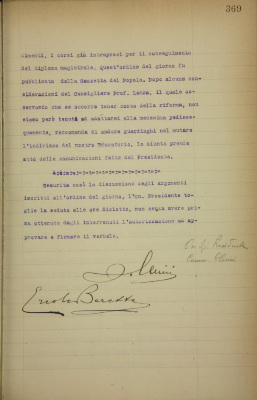 369
menti, i corsi già intrapresi per il conseguimento
del diploma magistrale, quest'ordine del giorno fu
pubblicato dalla Gazzetta del Popolo. Dopo alcune con-
siderazioni del Consigliere Prof. Lanza, il quale os-
servando che se occorre tener conto della riforma, non
siamo però tenuti ad adattarci alla medesima pedisse-
quamente, raccomanda di andare guardinghi nel mutare
l'indirizzo del nostro Educatorio, la Giunta prende
atto delle comunicazioni fatte dal Presidente.
Esaurita così la discussione degli argomenti
inscritti all'ordine del giorno, l'On. Presidente to-
glie la seduta alle ore diciotto, non senza avere pri-
ma ottenuto dagli intervenuti l'autorizzazione ad ap-
provare e firmare il verbale.